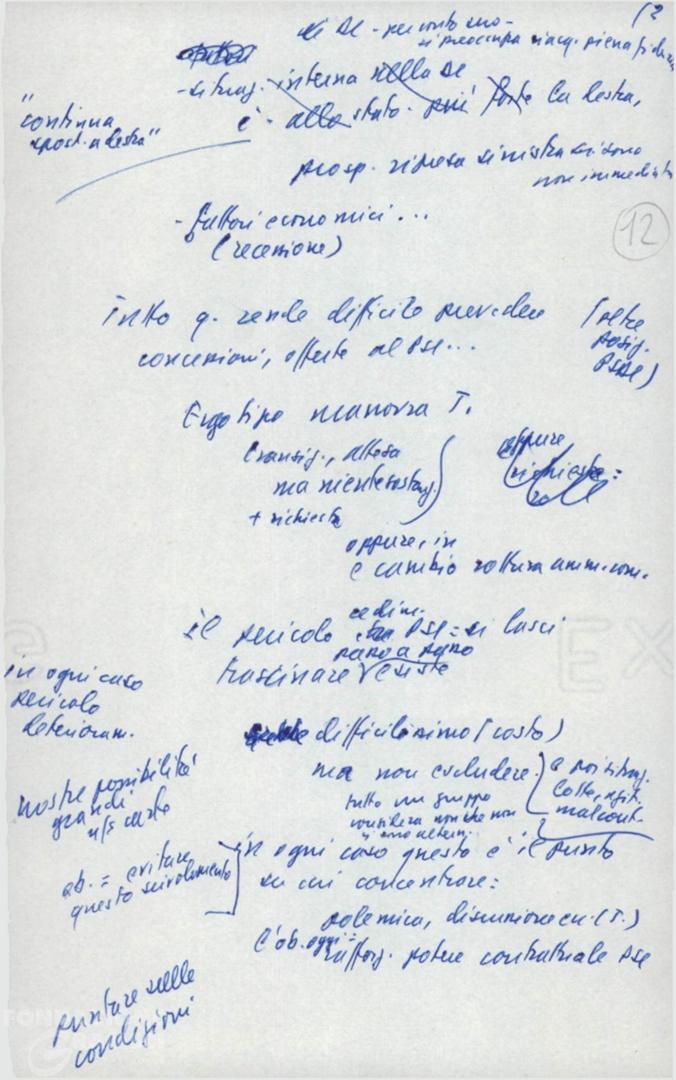 12
di DC - per conto suo -
si preoccupa riacq. piena fiducia
- situaz. interna nella DC
è - allo stato - più forte la destra,
"continua
spost. a destra"
prosp. ripresa sinistra si sono
non immediata
- fattori economici...
(recessione)
12
Tutto q. rende difficile prevedere
concessioni, offerte al PSI...
(oltre
posiz.
PSDI)
Ergo tipo manovra T.
transig., attesa
ma niente sostanz.
+ richiesta
oppure
richieste:
oppure, in
e cambio rottura amm. com.
il pericolo cedim. PSI = si lasci
passo a passo
trascinare esiste
in ogni caso
pericolo
deterioram.
difficilissimo (costo)
ma non escludere.
tutto un gruppo
considera non che non
vi sono altern.
e poi situaz.
lotte, agit.
malcont.
nostre possibilità
grandi
n/s carte
in ogni caso questo è il punto
su cui concentrare:
ob. = evitare
questo scivolamento
polemica, discussione cn. (T.)
L'ob. oggi =
rafforz. potere contrattuale PSI
puntare sulle
condizioni
FONDAZIONE
GRAMSCI
EX